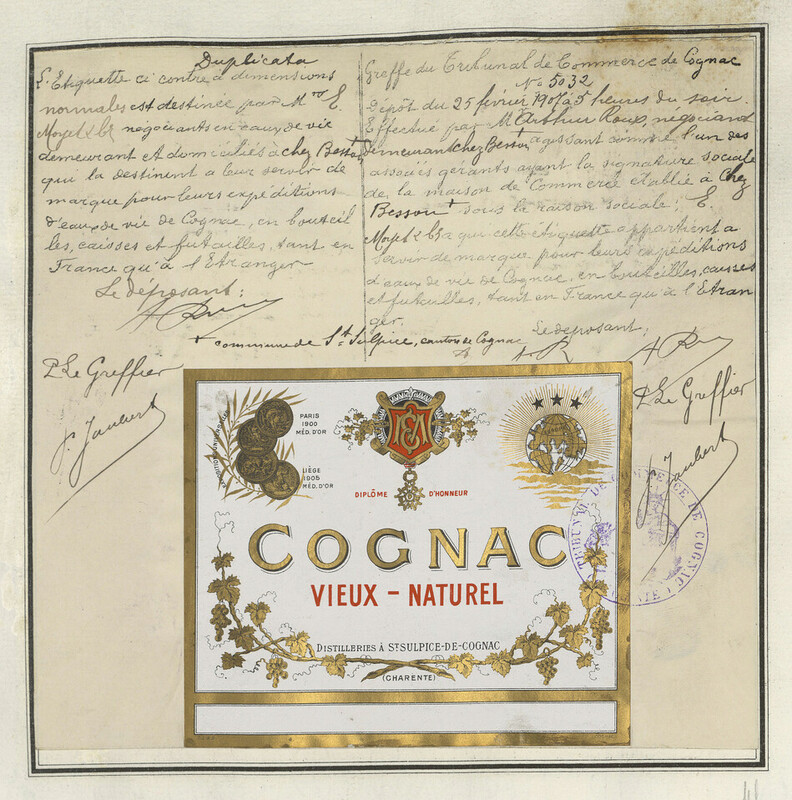 Duplicata
L'Etiquette ci contre à dimensions
normales est destinée par Mrs E.
Moyet & Cie négociants en eaux de vie
demeurant et domiciliés à chez Besson +
qui la destinent à leur servir de
marque pour leurs expéditions
d'eaux de vie de Cognac, en bouteil
les, caisses et futailles, tant en
France qu'à l'Etranger
Le déposant:
+ commune de St Sulpice, canton de Cognac
P. Le Greffier
J. Jaubert
Greffe du Tribunal de Commerce de Cognac
No 5032
Dépôt du 25 février 1907 à 5 heures du soir
Effectué par Mr Arthur Roux, négociant
demeurant chez Besson + agissant comme l'un des
associés gérants ayant la signature sociale
de la maison de Commerce établie à Chez
Besson + sous la raison sociale: E.
Moyet & Cie à qui cette étiquette appartient à
servir de marque pour leurs expéditions
d'eaux de vie de Cognac en bouteilles, caisses
et futailles, tant en France qu'à l'Etran
ger.
Le déposant:
P. Le Greffier
J. Jaubert
PARIS
1900
MÉD. D'OR
LIÈGE
1905
MÉD. D'OR
DIPLÔME D'HONNEUR
COGNAC
VIEUX - NATUREL
DISTILLERIES À ST SULPICE-DE-COGNAC
(CHARENTE)
TRIBUNAL DE COMMERCE DE COGNAC